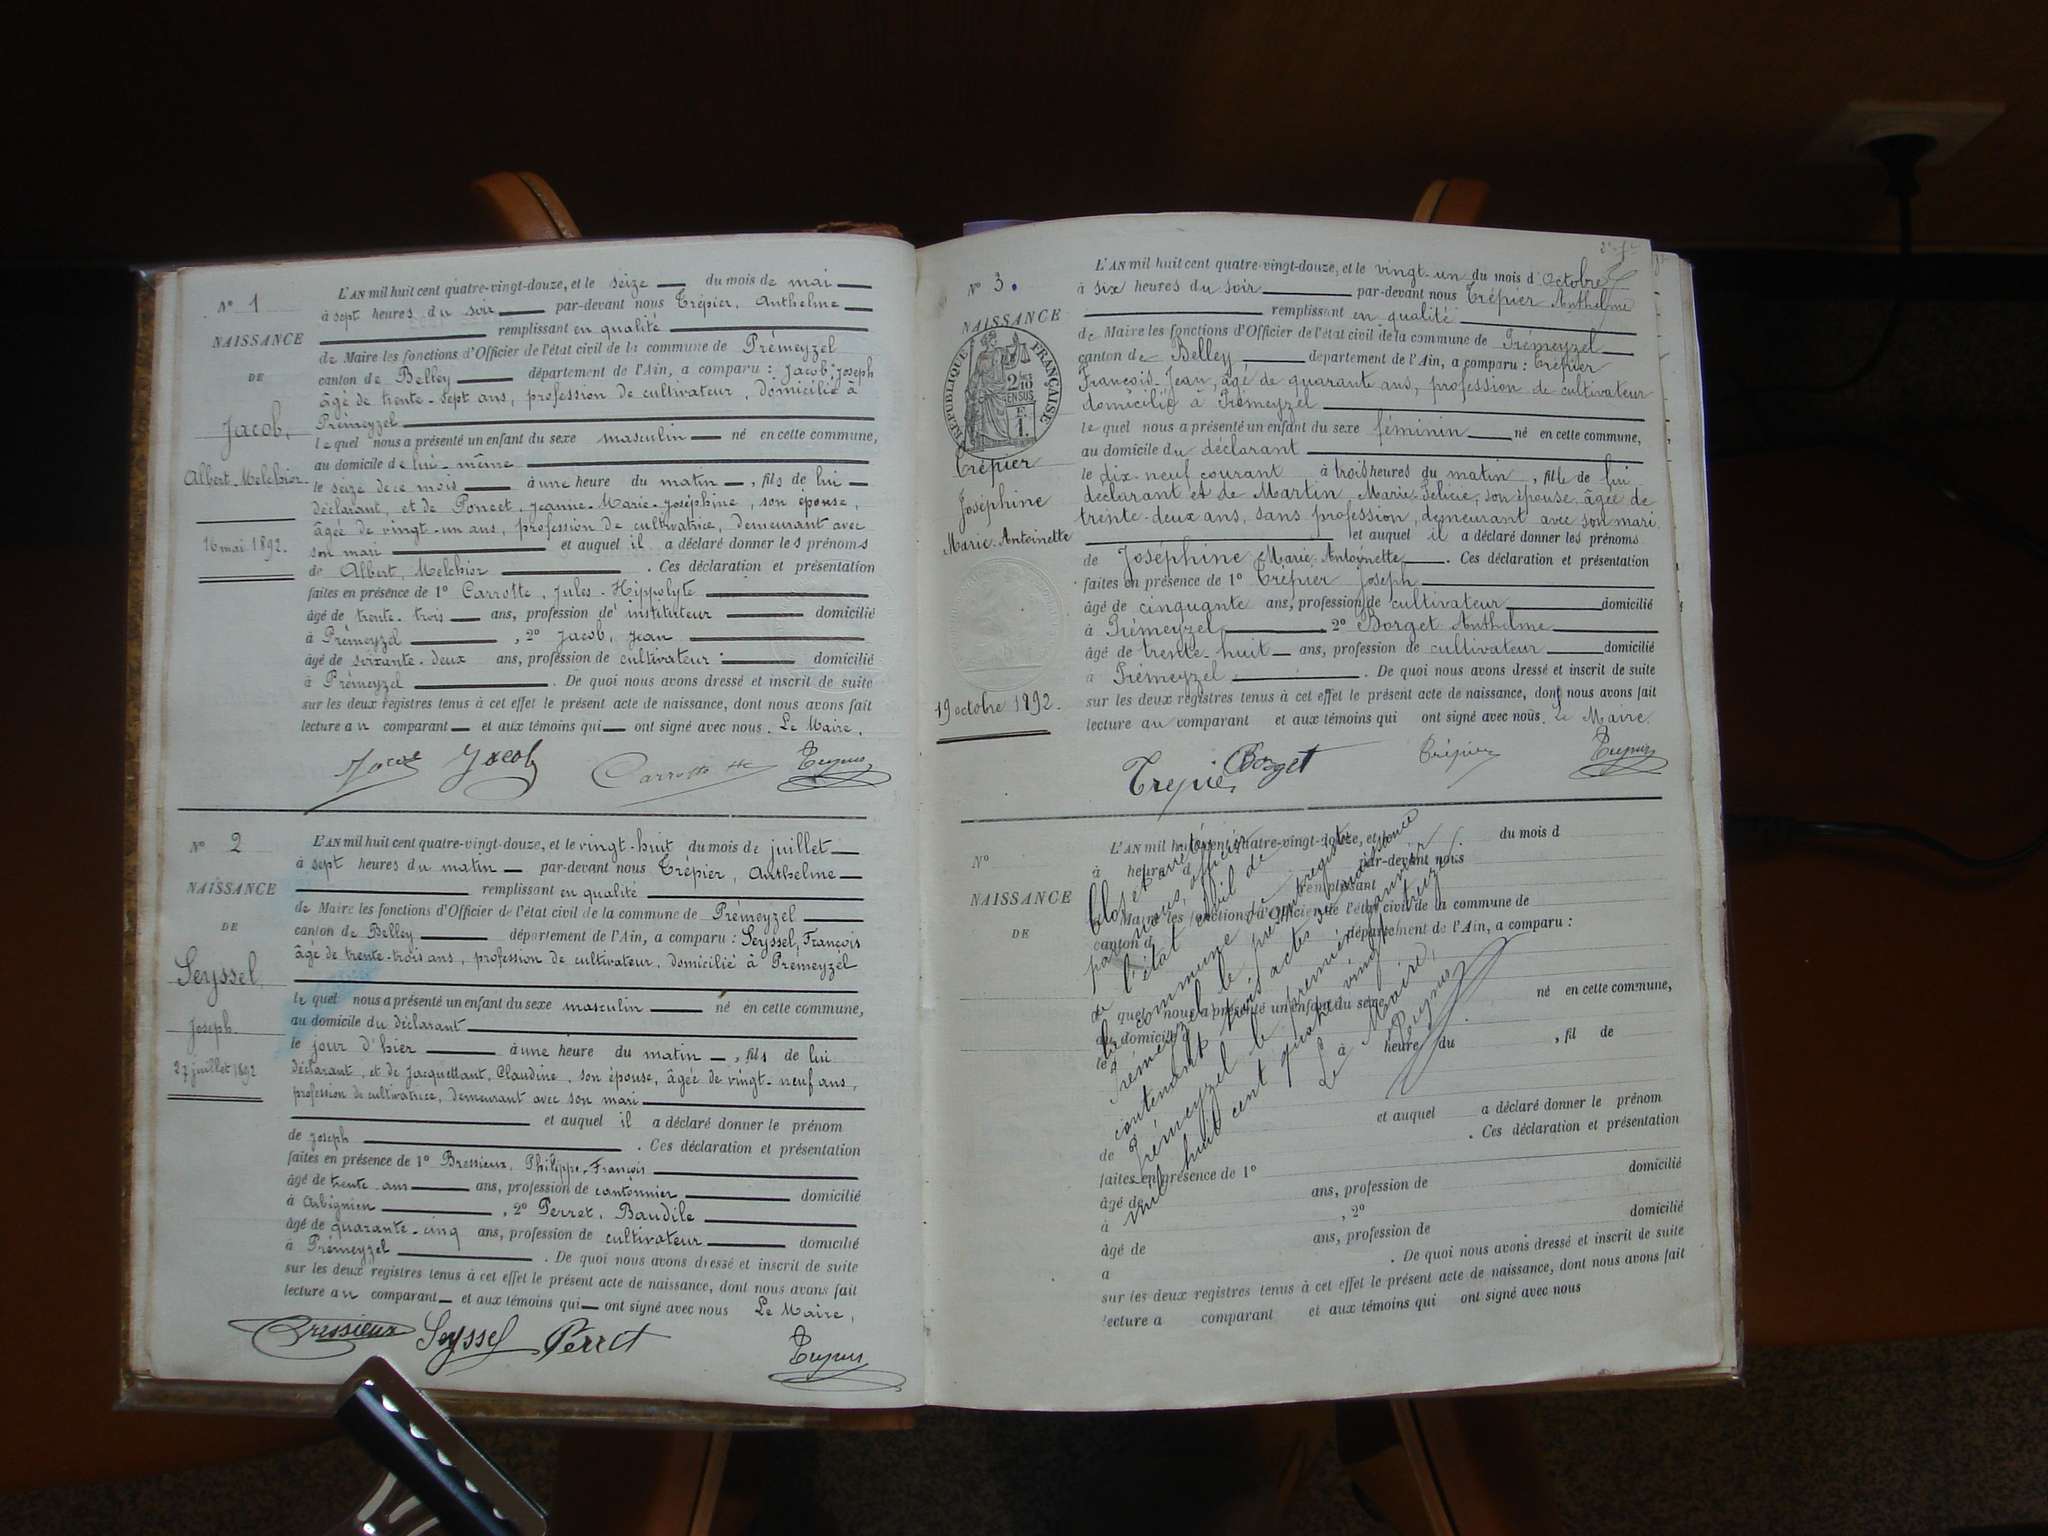 N° 1
NAISSANCE
DE
Jacob,
Albert-Melchior
16 mai 1892.
L'AN mil huit cent quatre-vingt-douze, et le seize du mois de mai
à sept heures du soir par-devant nous Trépier, Anthelme
remplissant en qualité
de Maire les fonctions d'Officier de l'état civil de la commune de Prémeyzel
canton de Belley département de l'Ain, a comparu : Jacob, Joseph
âgé de trente-sept ans, profession de cultivateur, domicilié à
Prémeyzel
le quel nous a présenté un enfant du sexe masculin né en cette commune,
au domicile de lui-même
le seize de ce mois à une heure du matin, fils de lui
déclarant, et de Poncet, Jeanne-Marie-Joséphine, son épouse,
âgée de vingt-un ans, profession de cultivatrice, demeurant avec
son mari et auquel il a déclaré donner les prénoms
de Albert, Melchior. Ces déclaration et présentation
faites en présence de 1° Carrotte, Jules-Hippolyte
âgé de trente-trois ans, profession de instituteur domicilié
à Prémeyzel, 2° Jacob, Jean
âgé de soixante-deux ans, profession de cultivateur domicilié
à Prémeyzel. De quoi nous avons dressé et inscrit de suite
sur les deux registres tenus à cet effet le présent acte de naissance, dont nous avons fait
lecture au comparant et aux témoins qui ont signé avec nous. Le Maire,
Jacob Jacob Carrotte Trépier
N° 2
NAISSANCE
DE
Seyssel,
Joseph.
27 juillet 1892
L'AN mil huit cent quatre-vingt-douze, et le vingt-huit du mois de juillet
à sept heures du matin par-devant nous Trépier, Anthelme
remplissant en qualité
de Maire les fonctions d'Officier de l'état civil de la commune de Prémeyzel
canton de Belley département de l'Ain, a comparu : Seyssel, François
âgé de trente-trois ans, profession de cultivateur, domicilié à Prémeyzel
le quel nous a présenté un enfant du sexe masculin né en cette commune,
au domicile du déclarant
le jour d'hier à une heure du matin, fils de lui
déclarant, et de Jacquettant, Claudine, son épouse, âgée de vingt-neuf ans,
profession de cultivatrice, demeurant avec son mari
et auquel il a déclaré donner le prénom
de Joseph. Ces déclaration et présentation
faites en présence de 1° Bressieux, Philippe-François
âgé de trente ans ans, profession de cantonnier domicilié
à Arbignieu, 2° Perret, Baudile
âgé de quarante-cinq ans, profession de cultivateur domicilié
à Prémeyzel. De quoi nous avons dressé et inscrit de suite
sur les deux registres tenus à cet effet le présent acte de naissance, dont nous avons fait
lecture au comparant et aux témoins qui ont signé avec nous Le Maire,
Bressieux Seyssel Perret Trépier
N° 3.
NAISSANCE
RÉPUBLIQUE FRANÇAISE
Trépier
Joséphine
Marie-Antoinette
19 octobre 1892.
L'AN mil huit cent quatre-vingt-douze, et le vingt-un du mois d'Octobre
à six heures du soir par-devant nous Trépier Anthelme
remplissant en qualité
de Maire les fonctions d'Officier de l'état civil de la commune de Prémeyzel
canton de Belley département de l'Ain, a comparu : Trépier
François-Jean, âgé de quarante ans, profession de cultivateur
domicilié à Prémeyzel
le quel nous a présenté un enfant du sexe féminin né en cette commune,
au domicile du déclarant
le dix-neuf courant à trois heures du matin, fille de lui
déclarant et de Martin, Marie-Félicie, son épouse âgée de
trente-deux ans, sans profession, demeurant avec son mari,
et auquel il a déclaré donner les prénoms
de Joséphine Marie-Antoinette. Ces déclaration et présentation
faites en présence de 1° Trépier Joseph
âgé de cinquante ans, profession de cultivateur domicilié
à Prémeyzel 2° Borget Anthelme
âgé de trente-huit ans, profession de cultivateur domicilié
à Prémeyzel. De quoi nous avons dressé et inscrit de suite
sur les deux registres tenus à cet effet le présent acte de naissance, dont nous avons fait
lecture au comparant et aux témoins qui ont signé avec nous. Le Maire.
Trepier Borget Trépier Trépier
N°
NAISSANCE
DE
L'AN mil huit cent quatre-vingt-douze, et du mois d
à heure d par-devant nous
remplissant
d Maire les fonctions d'Officier de l'état civil de la commune de
canton d département de l'Ain, a comparu :
le quel nous a présenté un enfant du sexe né en cette commune,
au domicile d
le à heure du , fil de
et auquel a déclaré donner le prénom
de . Ces déclaration et présentation
faites en présence de 1°
âgé de ans, profession de domicilié
à , 2°
âgé de ans, profession de domicilié
à . De quoi nous avons dressé et inscrit de suite
sur les deux registres tenus à cet effet le présent acte de naissance, dont nous avons fait
lecture a comparant et aux témoins qui ont signé avec nous
Clos et arrêté
par nous, officier
de l'état civil de
la commune de
Prémeyzel le présent registre
contenant trois actes de naissance
Prémeyzel le premier janvier
mil huit cent quatre vingt treize.
Le Maire,
Trépier